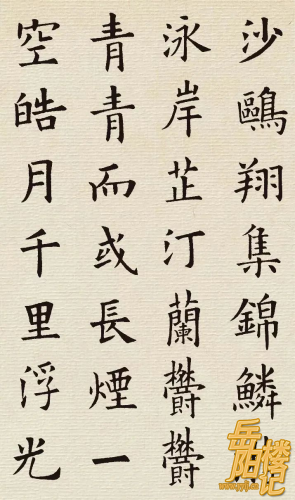 沙鷗翔集錦鱗
泳岸芷汀蘭欝欝
青青而或長煙一
空皓月千里浮光
岳阳楼记